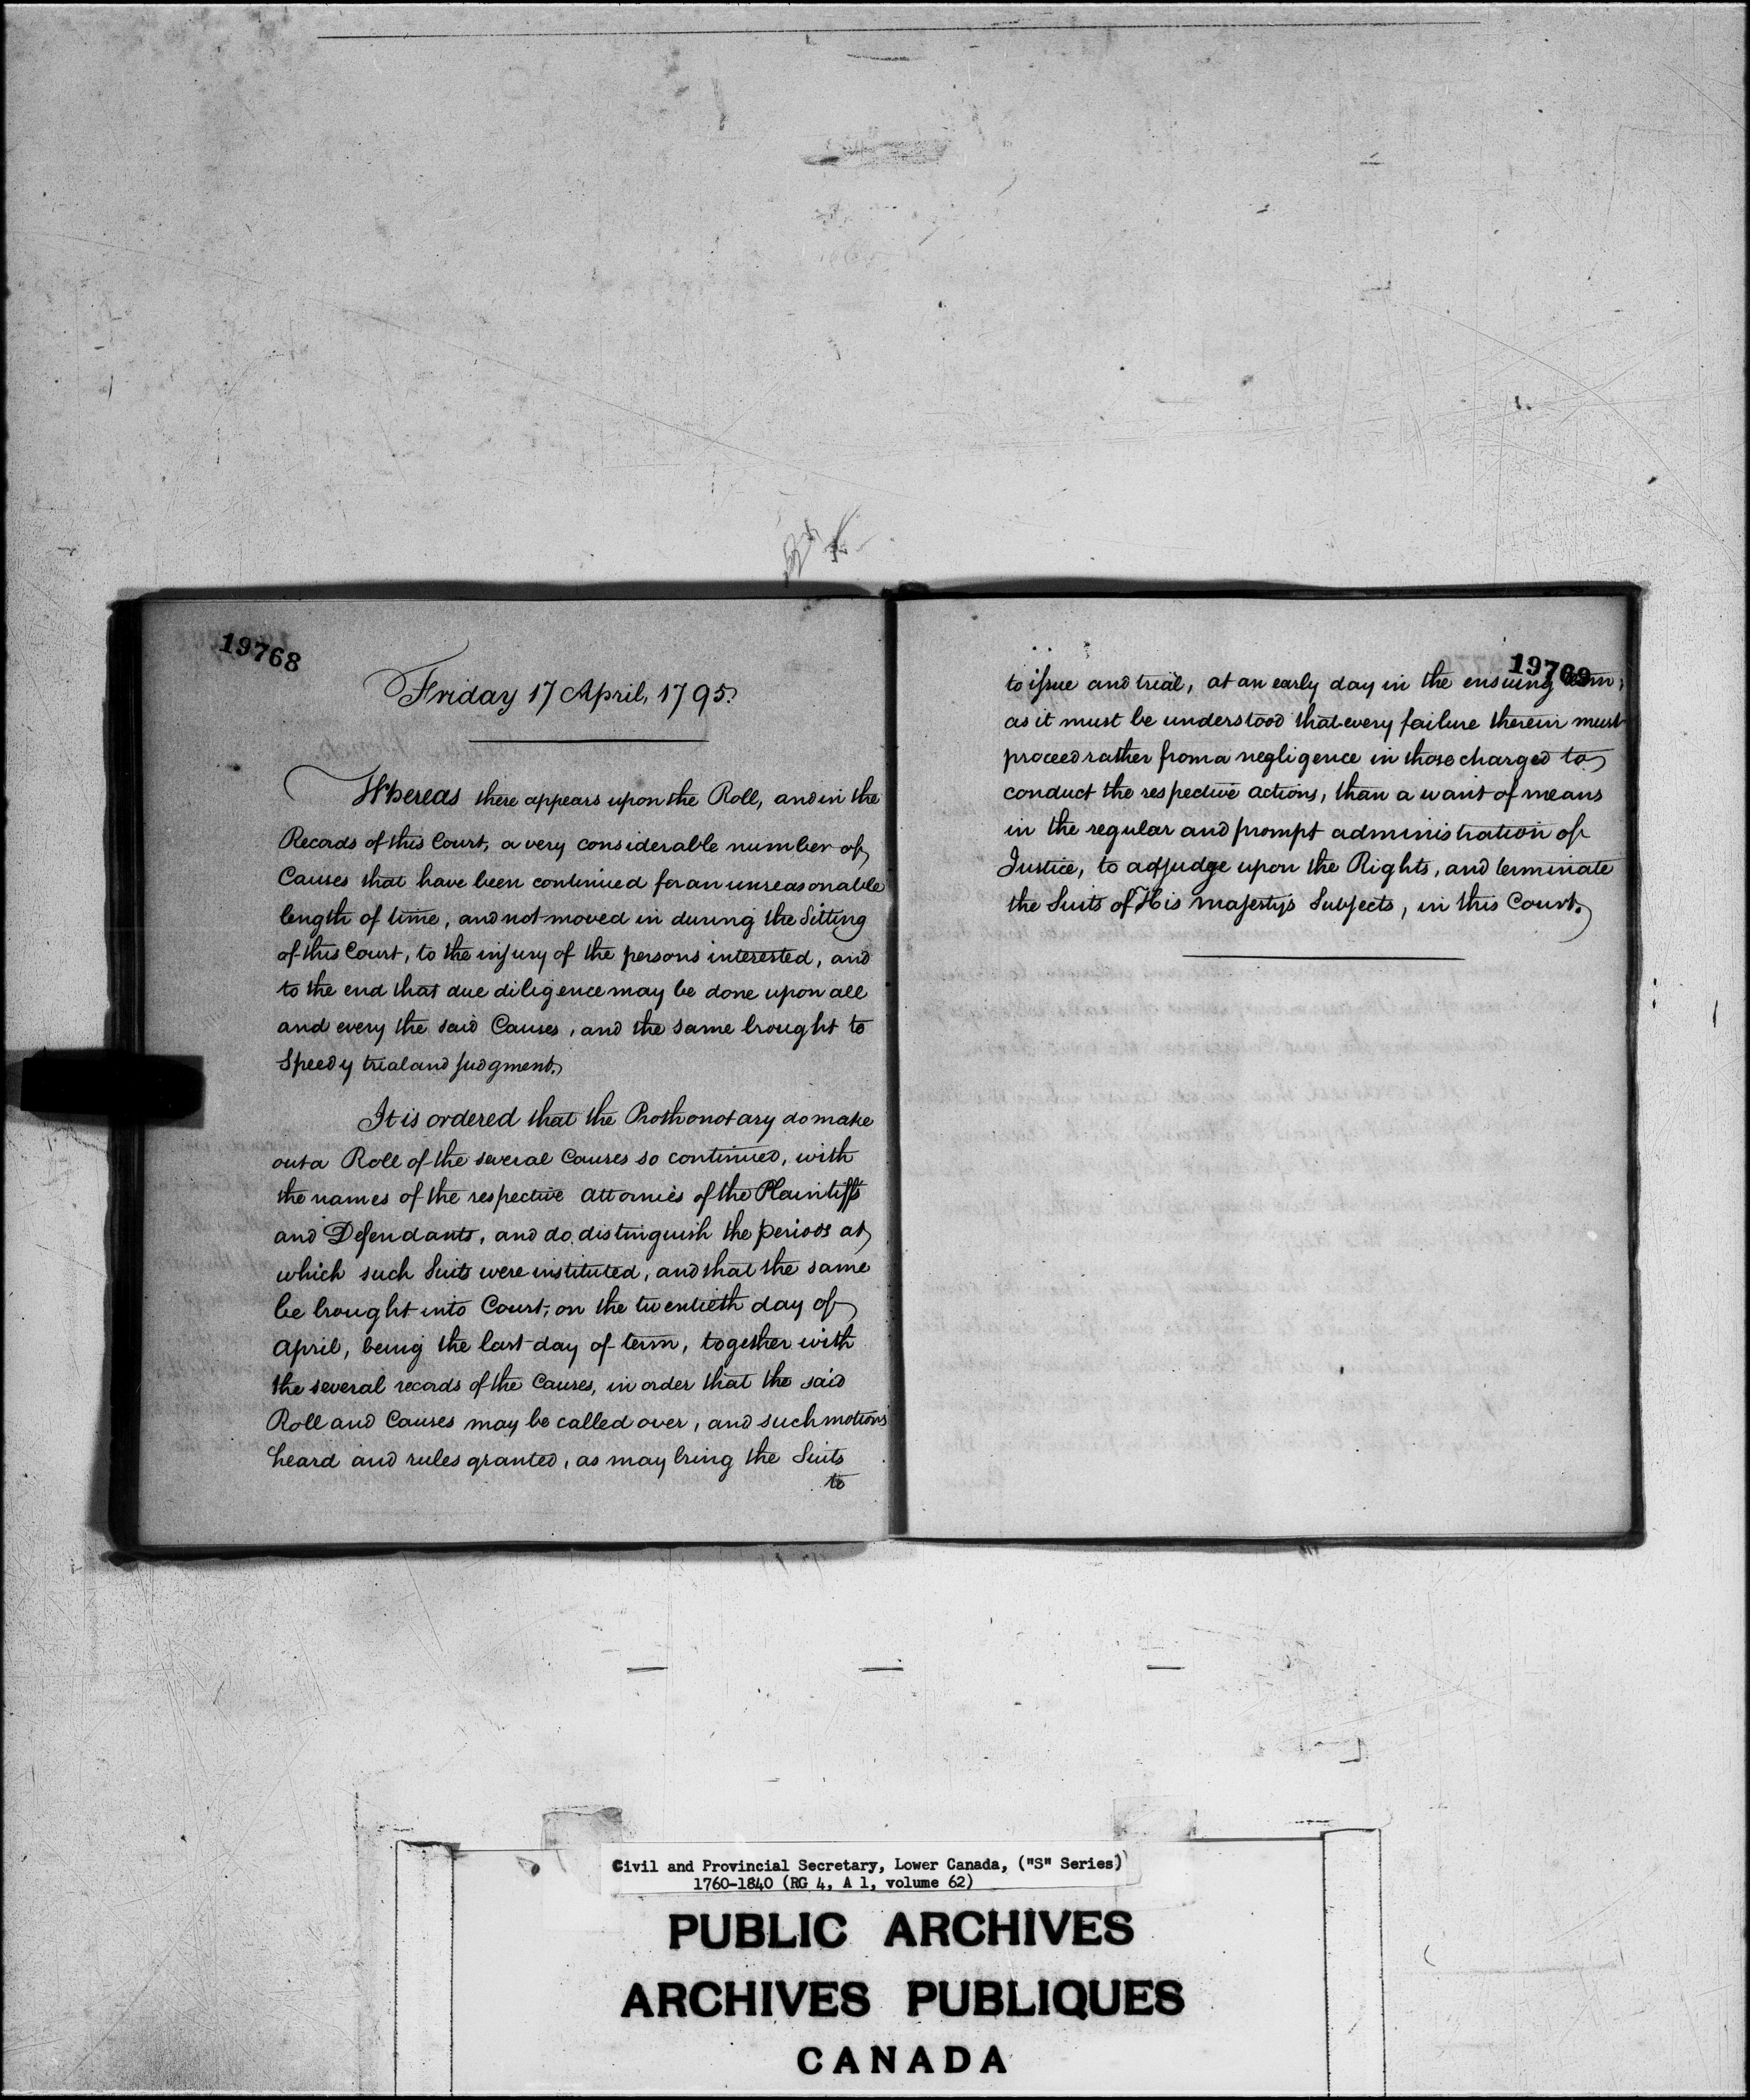 19768
Friday 17 April, 1795.
Whereas there appears upon the Roll, and in the
Records of this Court, a very considerable number of
Causes that have been continued for an unreasonable
length of time, and not moved in during the Sitting
of this Court, to the injury of the persons interested, and
to the end that due diligence may be done upon all
and every the said Causes, and the same brought to
Speedy trial and judgment.
It is ordered that the Prothonotary do make
out a Roll of the several Causes so continued, with
the names of the respective attornies of the Plaintiffs
and Defendants, and do distinguish the periods at
which such Suits were instituted, and that the same
be brought into Court, on the twentieth day of
April, being the last day of term, together with
the several records of the Causes, in order that the said
Roll and Causes may be called over, and such motions
heard and rules granted, as may bring the Suits
to
19769
to issue and trial, at an early day in the ensuing term;
as it must be understood that every failure therein must
proceed rather from a negligence in those charged to
conduct the respective actions, than a want of means
in the regular and prompt administration of
Justice, to adjudge upon the Rights, and terminate
the Suits of His Majesty's Subjects, in this Court.
Civil and Provincial Secretary, Lower Canada, ("S" Series)
1760-1840 (RG 4, A 1, volume 62)
PUBLIC ARCHIVES
ARCHIVES PUBLIQUES
CANADA